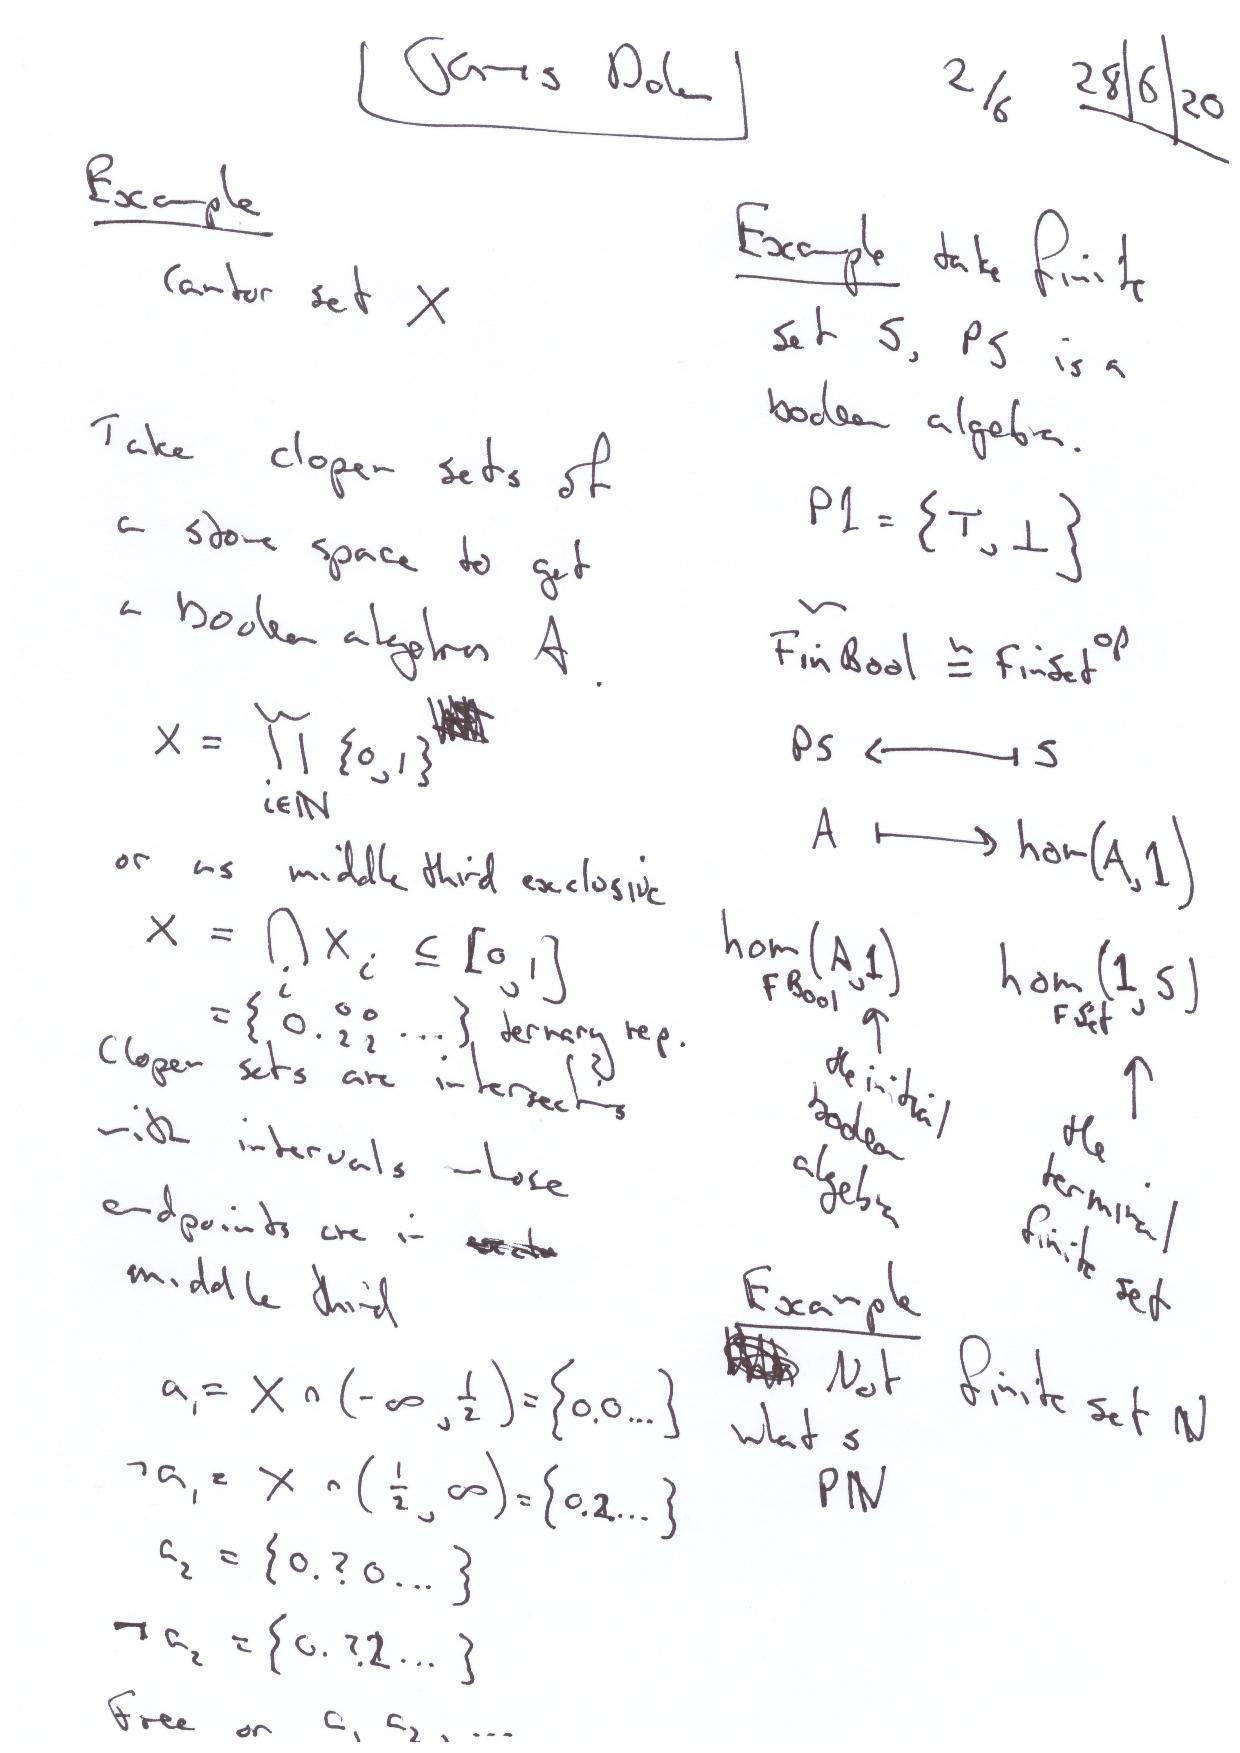 James Dolan
2/6 28/6/20
Example
Cantor set X
Take clopen sets of
a stone space to get
a boolean algebra A.
X = ∏ {0,1}
i∈ℕ
or as middle third exclusive
X = ⋂ Xᵢ ⊆ [0,1]
i
= {0.⁰₂⁰₂ ...} ternary rep.
Clopen sets are intersects
with intervals whose
endpoints are in
middle third
a₁ = X ∩ (-∞, 1/2) = {0.0...}
¬a₁ = X ∩ (1/2, ∞) = {0.2...}
a₂ = {0.?0...}
¬a₂ = {0.?2...}
Free on a₁ a₂, ...
Example take finite
set S, PS is a
boolean algebra.
P1 = {⊤, ⊥}
FinBool ≅ FinSet^op
PS ⟵| S
A |⟶ hom(A,1)
hom(A,1) hom(1,S)
FBool FSet
↑ the initial boolean algebra
↑ the terminal finite set
Example
Not finite set ℕ
What s
Pℕ